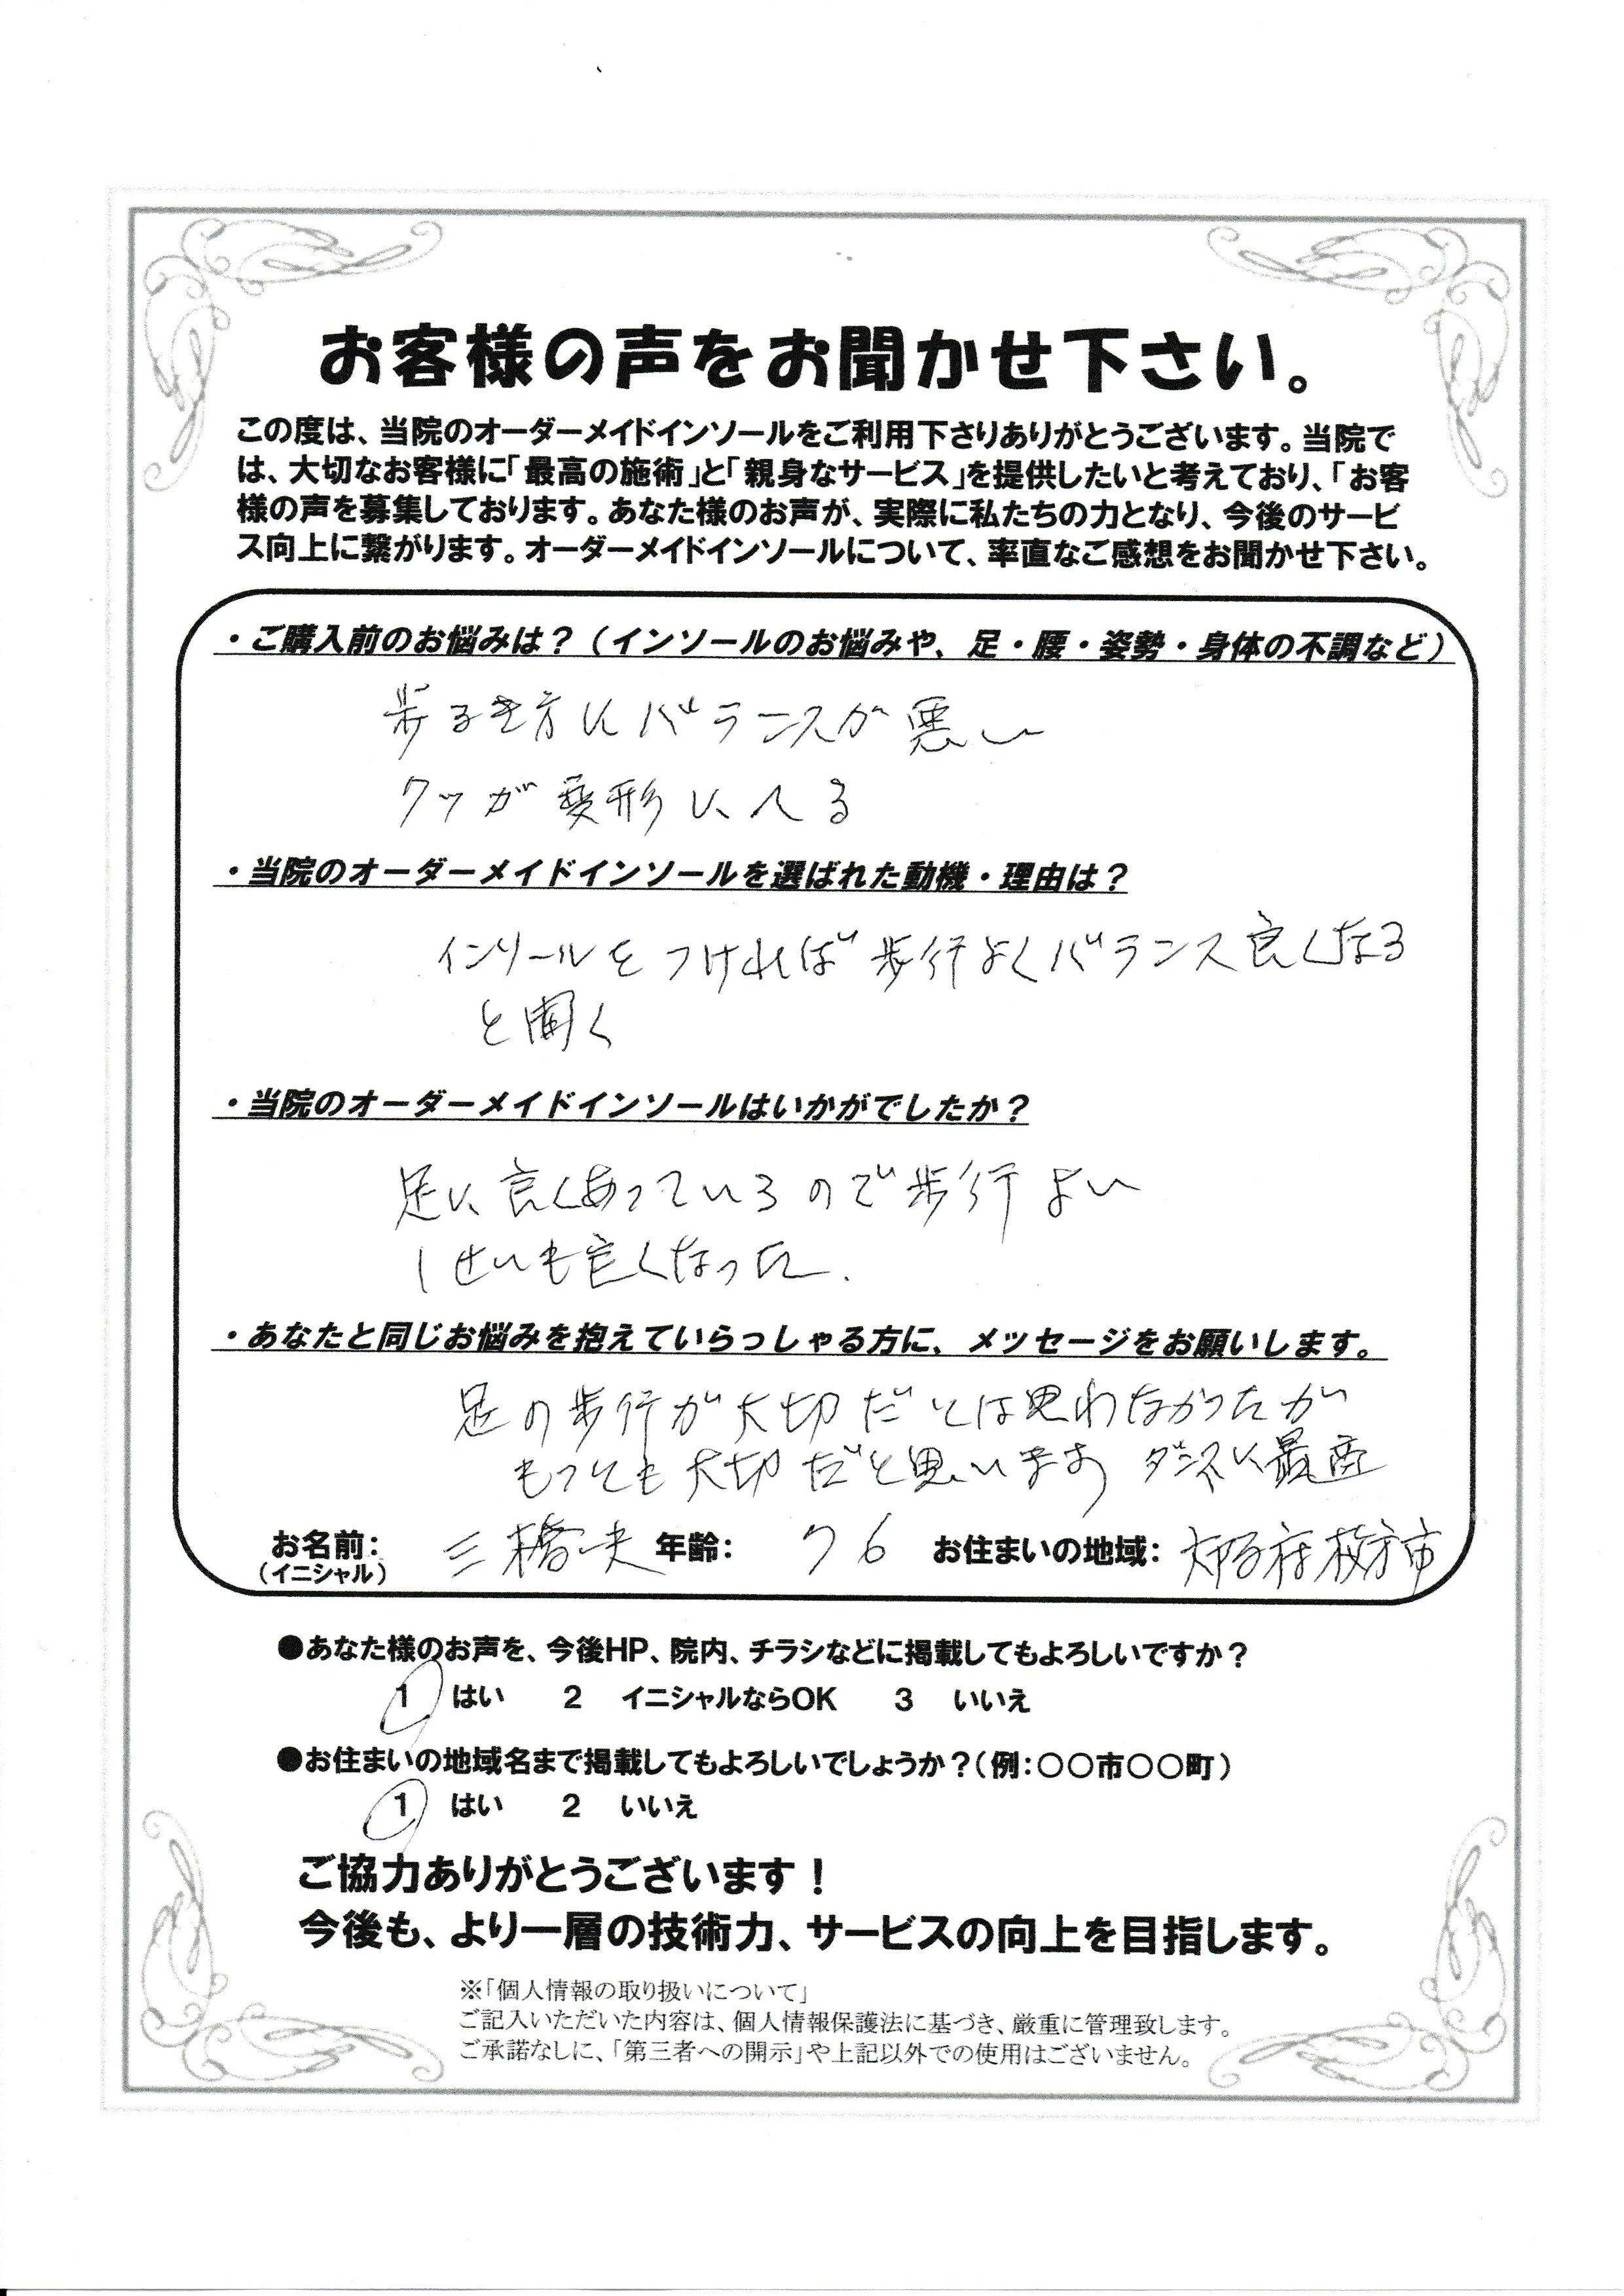 お客様の声をお聞かせ下さい。
この度は、当院のオーダーメイドインソールをご利用下さりありがとうございます。当院で
は、大切なお客様に「最高の施術」と「親身なサービス」を提供したいと考えており、「お客
様の声を募集しております。あなた様のお声が、実際に私たちの力となり、今後のサービ
ス向上に繋がります。オーダーメイドインソールについて、率直なご感想をお聞かせ下さい。
・ご購入前のお悩みは？（インソールのお悩みや、足・腰・姿勢・身体の不調など）
歩るき方にバランスが悪い
クツが変形に、へる
・当院のオーダーメイドインソールを選ばれた動機・理由は？
インソールをつければ歩行よくバランス良くなる
と聞く
・当院のオーダーメイドインソールはいかがでしたか？
足に良くあっているので歩行よい
しせいも良くなった.
・あなたと同じお悩みを抱えていらっしゃる方に、メッセージをお願いします。
足の歩行が大切だとは思わなかったが
もっとも大切だと思います ダンスに最適
お名前： 三橋一夫 年齢： 76 お住まいの地域： 大阪府枚方市
（イニシャル）
●あなた様のお声を、今後HP、院内、チラシなどに掲載してもよろしいですか？
1 はい 2 イニシャルならOK 3 いいえ
●お住まいの地域名まで掲載してもよろしいでしょうか？（例：〇〇市〇〇町）
1 はい 2 いいえ
ご協力ありがとうございます！
今後も、より一層の技術力、サービスの向上を目指します。
※「個人情報の取り扱いについて」
ご記入いただいた内容は、個人情報保護法に基づき、厳重に管理致します。
ご承諾なしに、「第三者への開示」や上記以外での使用はございません。